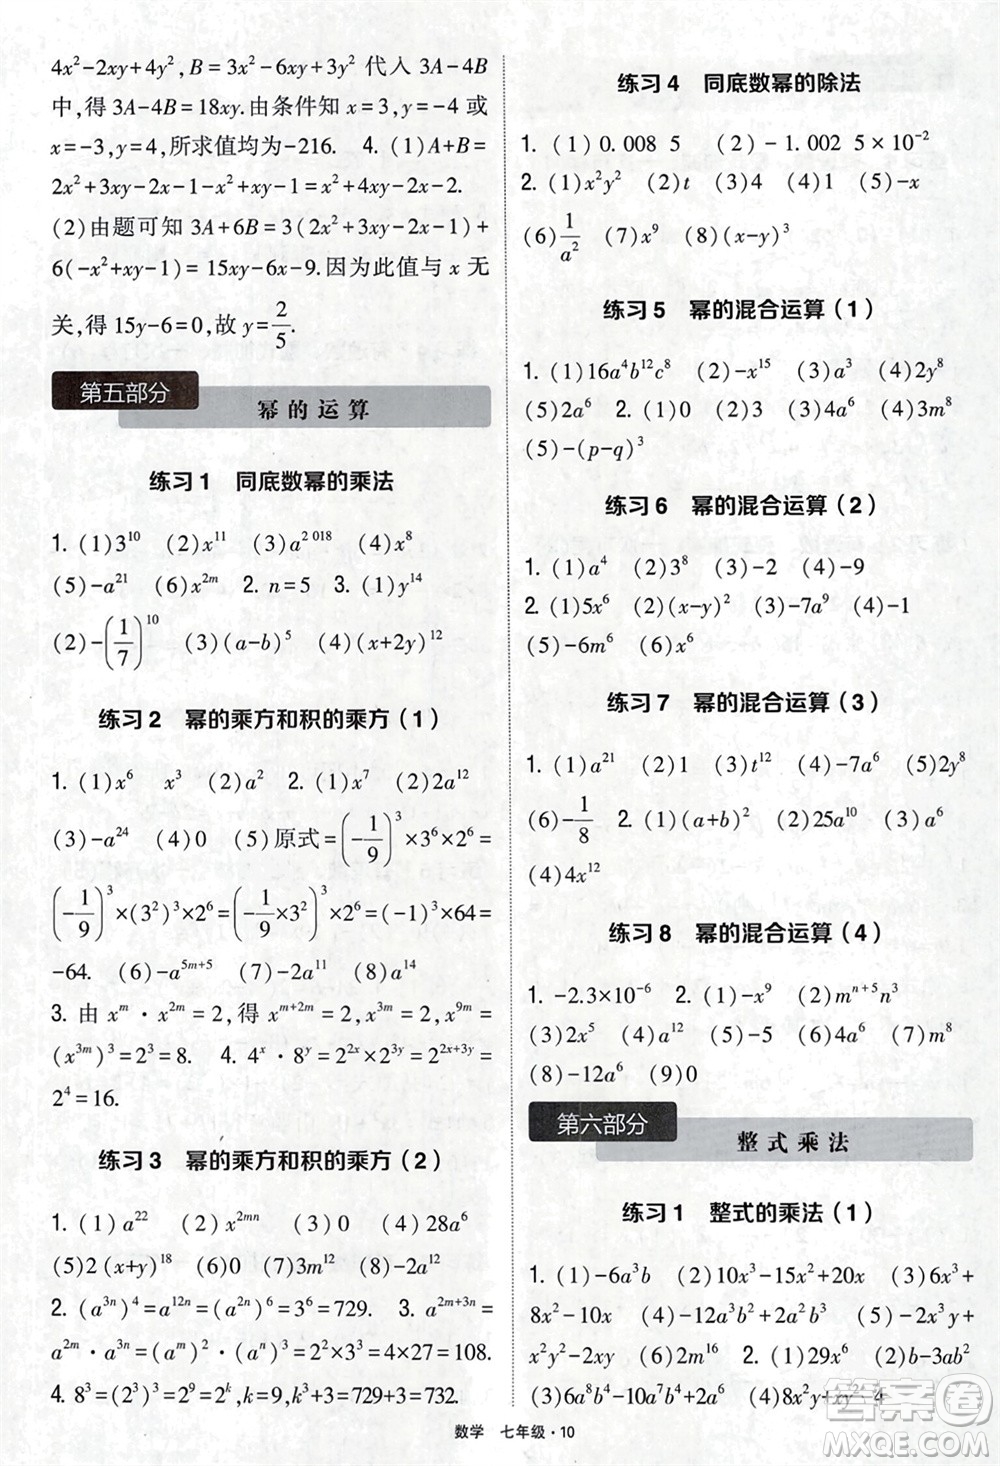 4x²-2xy+4y²,B=3x²-6xy+3y² 代入 3A-4B
中,得 3A-4B=18xy.由条件知 x=3,y=-4 或
x=-3,y=4,所求值均为-216. 4. (1)A+B=
2x²+3xy-2x-1-x²+xy-1=x²+4xy-2x-2.
(2)由题可知 3A+6B=3(2x²+3xy-2x-1)+
6(-x²+xy-1)=15xy-6x-9.因为此值与 x 无
关,得 15y-6=0,故 y=2/5.
第五部分
幂的运算
练习 1 同底数幂的乘法
1. (1)3¹⁰ (2)x¹¹ (3)a²⁰¹⁸ (4)x⁸
(5)-a²¹ (6)x²ᵐ 2. n=5 3. (1)y¹⁴
(2)-(1/7)¹⁰ (3)(a-b)⁵ (4)(x+2y)¹²
练习 2 幂的乘方和积的乘方(1)
1. (1)x⁶ x³ (2)a² 2. (1)x⁷ (2)2a¹²
(3)-a²⁴ (4)0 (5)原式=(-1/9)³×3⁶×2⁶=
(-1/9)³×(3²)³×2⁶=(-1/9×3²)³×2⁶=(-1)³×64=
-64. (6)-a⁵ᵐ⁺⁵ (7)-2a¹¹ (8)a²
3. 由 xᵐ·x²ᵐ=2,得 xᵐ⁺²ᵐ=2,x³ᵐ=2,x⁹ᵐ=
(x³ᵐ)³=2³=8. 4. 4ˣ·8ʸ=2²ˣ×2³ʸ=2²ˣ⁺³ʸ=
2⁴=16.
练习 3 幂的乘方和积的乘方(2)
1. (1)a²² (2)x²ᵐⁿ (3)0 (4)28a⁶
(5)2(x+y)¹⁸ (6)0 (7)3m¹² (8)a¹²
2. (a³ⁿ)⁴=a¹²ⁿ=(a²ⁿ)⁶=3⁶=729. 3. a²ᵐ⁺³ⁿ=
a²ᵐ·a³ⁿ=(aᵐ)²·(aⁿ)³=2²×3³=4×27=108.
4. 8³=(2³)³=2⁹=2ᵏ,k=9,3ᵏ⁻³+3=729+3=732.
练习 4 同底数幂的除法
1. (1)0.008 5 (2)-1.002 5×10⁻²
2. (1)x²y² (2)t (3)4 (4)1 (5)-x
(6)1/a² (7)x⁹ (8)(x-y)³
练习 5 幂的混合运算(1)
1. (1)16a⁴b¹²c⁸ (2)-x¹⁵ (3)a² (4)2a⁶
(5)2a⁶ 2. (1)0 (2)2 (3)4a⁶ (4)3m⁸
(5)-(p-q)³
练习 6 幂的混合运算(2)
1. (1)a⁴ (2)3⁸ (3)-2 (4)-9
2. (1)5x⁶ (2)(x-y)² (3)-7a⁹ (4)-1
(5)-6m⁶ (6)x⁶
练习 7 幂的混合运算(3)
1. (1)a²¹ (2)1 (3)t¹² (4)-7a⁶ (5)2y⁸
(6)-1/8 2. (1)(a+b)² (2)25a¹⁰ (3)a⁶
(4)4x¹²
练习 8 幂的混合运算(4)
1. -2.3×10⁻⁶ 2. (1)-x⁹ (2)mⁿ⁺⁵n³
(3)2x⁵ (4)a¹² (5)-5 (6)4a⁶ (7)m⁶
(8)-12a⁶ (9)0
第六部分
整式乘法
练习 1 整式的乘法(1)
1. (1)-6a³b (2)10x³-15x²+20x (3)6x³+
8x²-10x (4)-12a³b²+2a²b³ (5)-2x³y+
x²y²-2xy (6)2m¹⁶ 2. (1)29x⁶ (2)8b-2a²
(3)6a⁸b⁴-10a⁴b² (4)8x²y+xy²-4
数学 七年级·10
答案圈
MXQE.COM